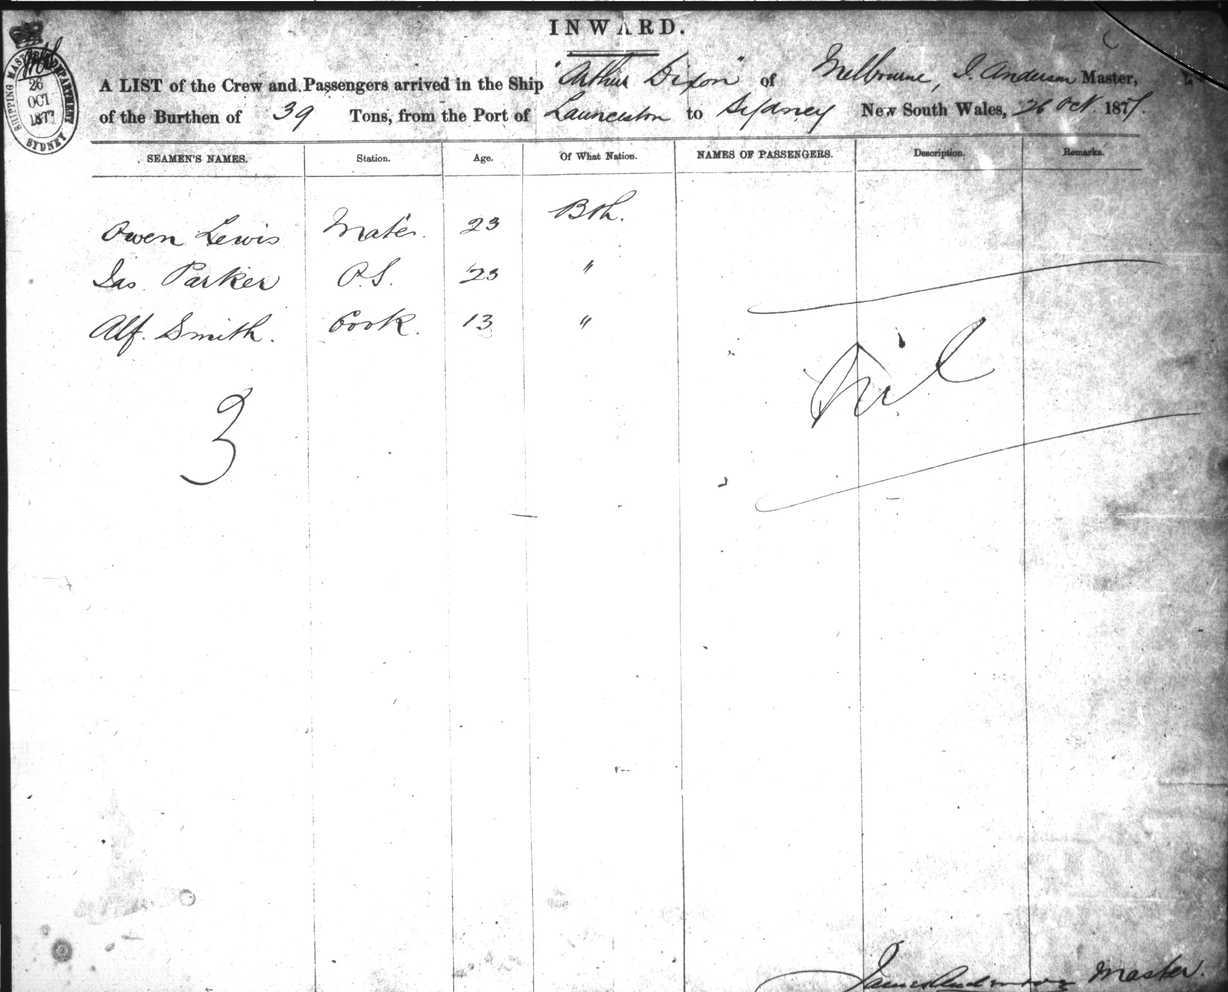 INWARD.
SHIPPING MASTER'S DEPARTMENT
26
OCT
1877
SYDNEY
A LIST of the Crew and Passengers arrived in the Ship "Arthur Dixon" of Melbourne, J. Anderson Master,
of the Burthen of 39 Tons, from the Port of Launceston to Sydney New South Wales, 26 Oct 1877.
SEAMEN'S NAMES. Station. Age. Of What Nation. NAMES OF PASSENGERS. Description. Remarks.
Owen Lewis Mate. 23 Bth.
Jas Parker O.S. 23 "
Alf. Smith. Cook. 13 "
Nil
3
James Anderson Master.